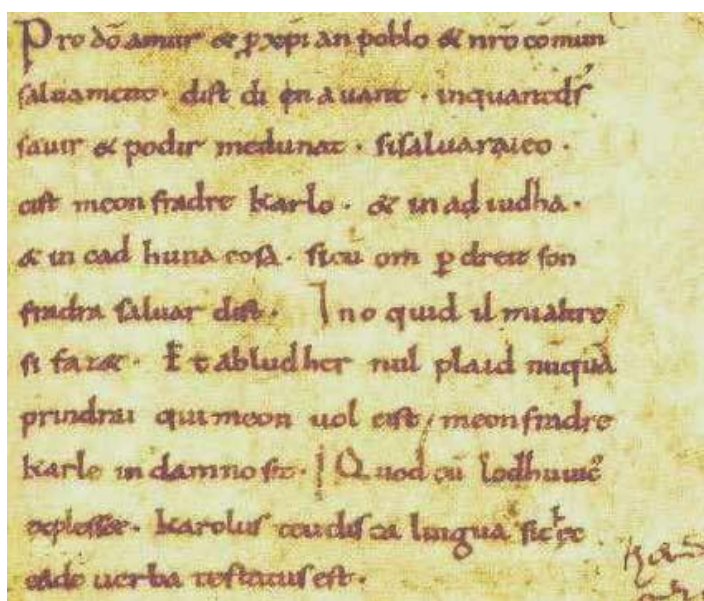 Pro dō amur & ꝑ xp̄ian poblo & nr̄o cōmun
saluament · dist di en auant · inquantdſ
sauir & podir medunat · sisaluaraieo ·
cist meon fradre Karlo · & in ad iudha ·
& in cad huna cosa · sicū om ꝑ dreit son
fradra saluar dist · Ino quid il mialtre
si faz& · Et abludher nul plaid nūquā
prindrai qui meon uol cist meonfradre
Karle in damno sit · Quod cū lodhuuic᾽
explesset · Karolus teudisca lingua sic ec
eadē uerba testatus est ·